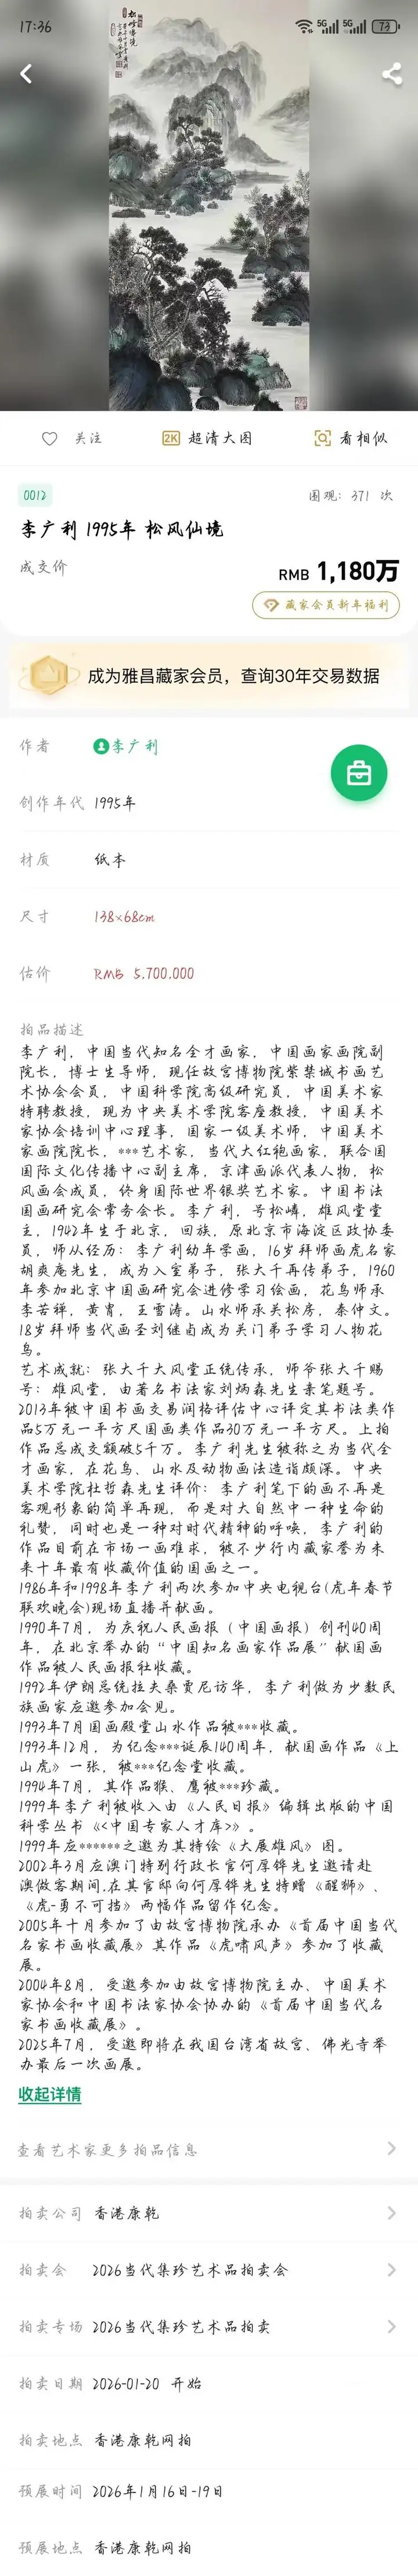 17:36
5G
5G
73
松峰仙境
关注
2K 超清大图
看相似
0012
围观：371 次
李广利 1995年 松风仙境
成交价
RMB 1,180万
藏家会员新年福利
成为雅昌藏家会员，查询30年交易数据
作者 李广利
创作年代 1995年
材质 纸本
尺寸 138×68cm
估价 RMB 5.700.000
拍品描述
李广利，中国当代知名全才画家，中国画家画院副
院长，博士生导师，现任故宫博物院紫禁城书画艺
术协会会员，中国科学院高级研究员，中国美术家
特聘教授，现为中央美术学院客座教授，中国美术
家协会培训中心理事，国家一级美术师，中国美术
家画院院长，***艺术家，当代大红袍画家，联合国
国际文化传播中心副主席，京津画派代表人物，松
风画会成员，终身国际世界银奖艺术家。中国书法
国画研究会常务会长。李广利，号松峰，雄风堂堂
主，1942年生于北京，回族，原北京市海淀区政协委
员，师从经历：李广利幼年学画，16岁拜师画虎名家
胡爽庵先生，成为入室弟子，张大千再传弟子，1960
年参加北京中国画研究会进修学习绘画，花鸟师承
李苦禅，黄胄，王雪涛。山水师承关松房，秦仲文。
18岁拜师当代画圣刘继卣成为关门弟子学习人物花
鸟。
艺术成就：张大千大风堂正统传承，师爷张大千赐
号：雄风堂，由著名书法家刘炳森先生亲笔题号。
2013年被中国书画交易润格评估中心评定其书法类作
品5万元一平方尺国画类作品30万元一平方尺。上拍
作品总成交额破5千万。李广利先生被称之为当代全
才画家，在花鸟、山水及动物画法造诣颇深。中央
美术学院杜哲森先生评价：李广利笔下的画不再是
客观形象的简单再现，而是对大自然中一种生命的
礼赞，同时也是一种对时代精神的呼唤，李广利的
作品目前在市场一画难求，被不少行内藏家誉为未
来十年最有收藏价值的国画之一。
1986年和1998年李广利两次参加中央电视台(虎年春节
联欢晚会)现场直播并献画。
1990年7月，为庆祝人民画报（中国画报）创刊40周
年，在北京举办的“中国知名画家作品展”献国画
作品被人民画报社收藏。
1992年伊朗总统拉夫桑贾尼访华，李广利做为少数民
族画家应邀参加会见。
1993年7月国画殿堂山水作品被***收藏。
1993年12月，为纪念***诞辰140周年，献国画作品《上
山虎》一张，被***纪念堂收藏。
1994年7月，其作品猴、鹰被***珍藏。
1999年李广利被收入由《人民日报》编辑出版的中国
科学丛书《<中国专家人才库>》。
1999年应******之邀为其特绘《大展雄风》图。
2002年3月应澳门特别行政长官何厚铧先生邀请赴
澳做客期间.在其官邸向何厚铧先生特赠《醒狮》、
《虎-勇不可挡》两幅作品留作纪念。
2005年十月参加了由故宫博物院承办《首届中国当代
名家书画收藏展》其作品《虎啸风声》参加了收藏
展。
2004年8月，受邀参加由故宫博物院主办、中国美术
家协会和中国书法家协会协办的《首届中国当代名
家书画收藏展》。
2025年7月，受邀即将在我国台湾省故宫、佛光寺举
办最后一次画展。
收起详情
查看艺术家更多拍品信息
拍卖公司 香港康乾
拍卖会 2026当代集珍艺术品拍卖会
拍卖专场 2026当代集珍艺术品拍卖
拍卖日期 2026-01-20 开始
拍卖地点 香港康乾网拍
预展时间 2026年1月16日-19日
预展地点 香港康乾网拍